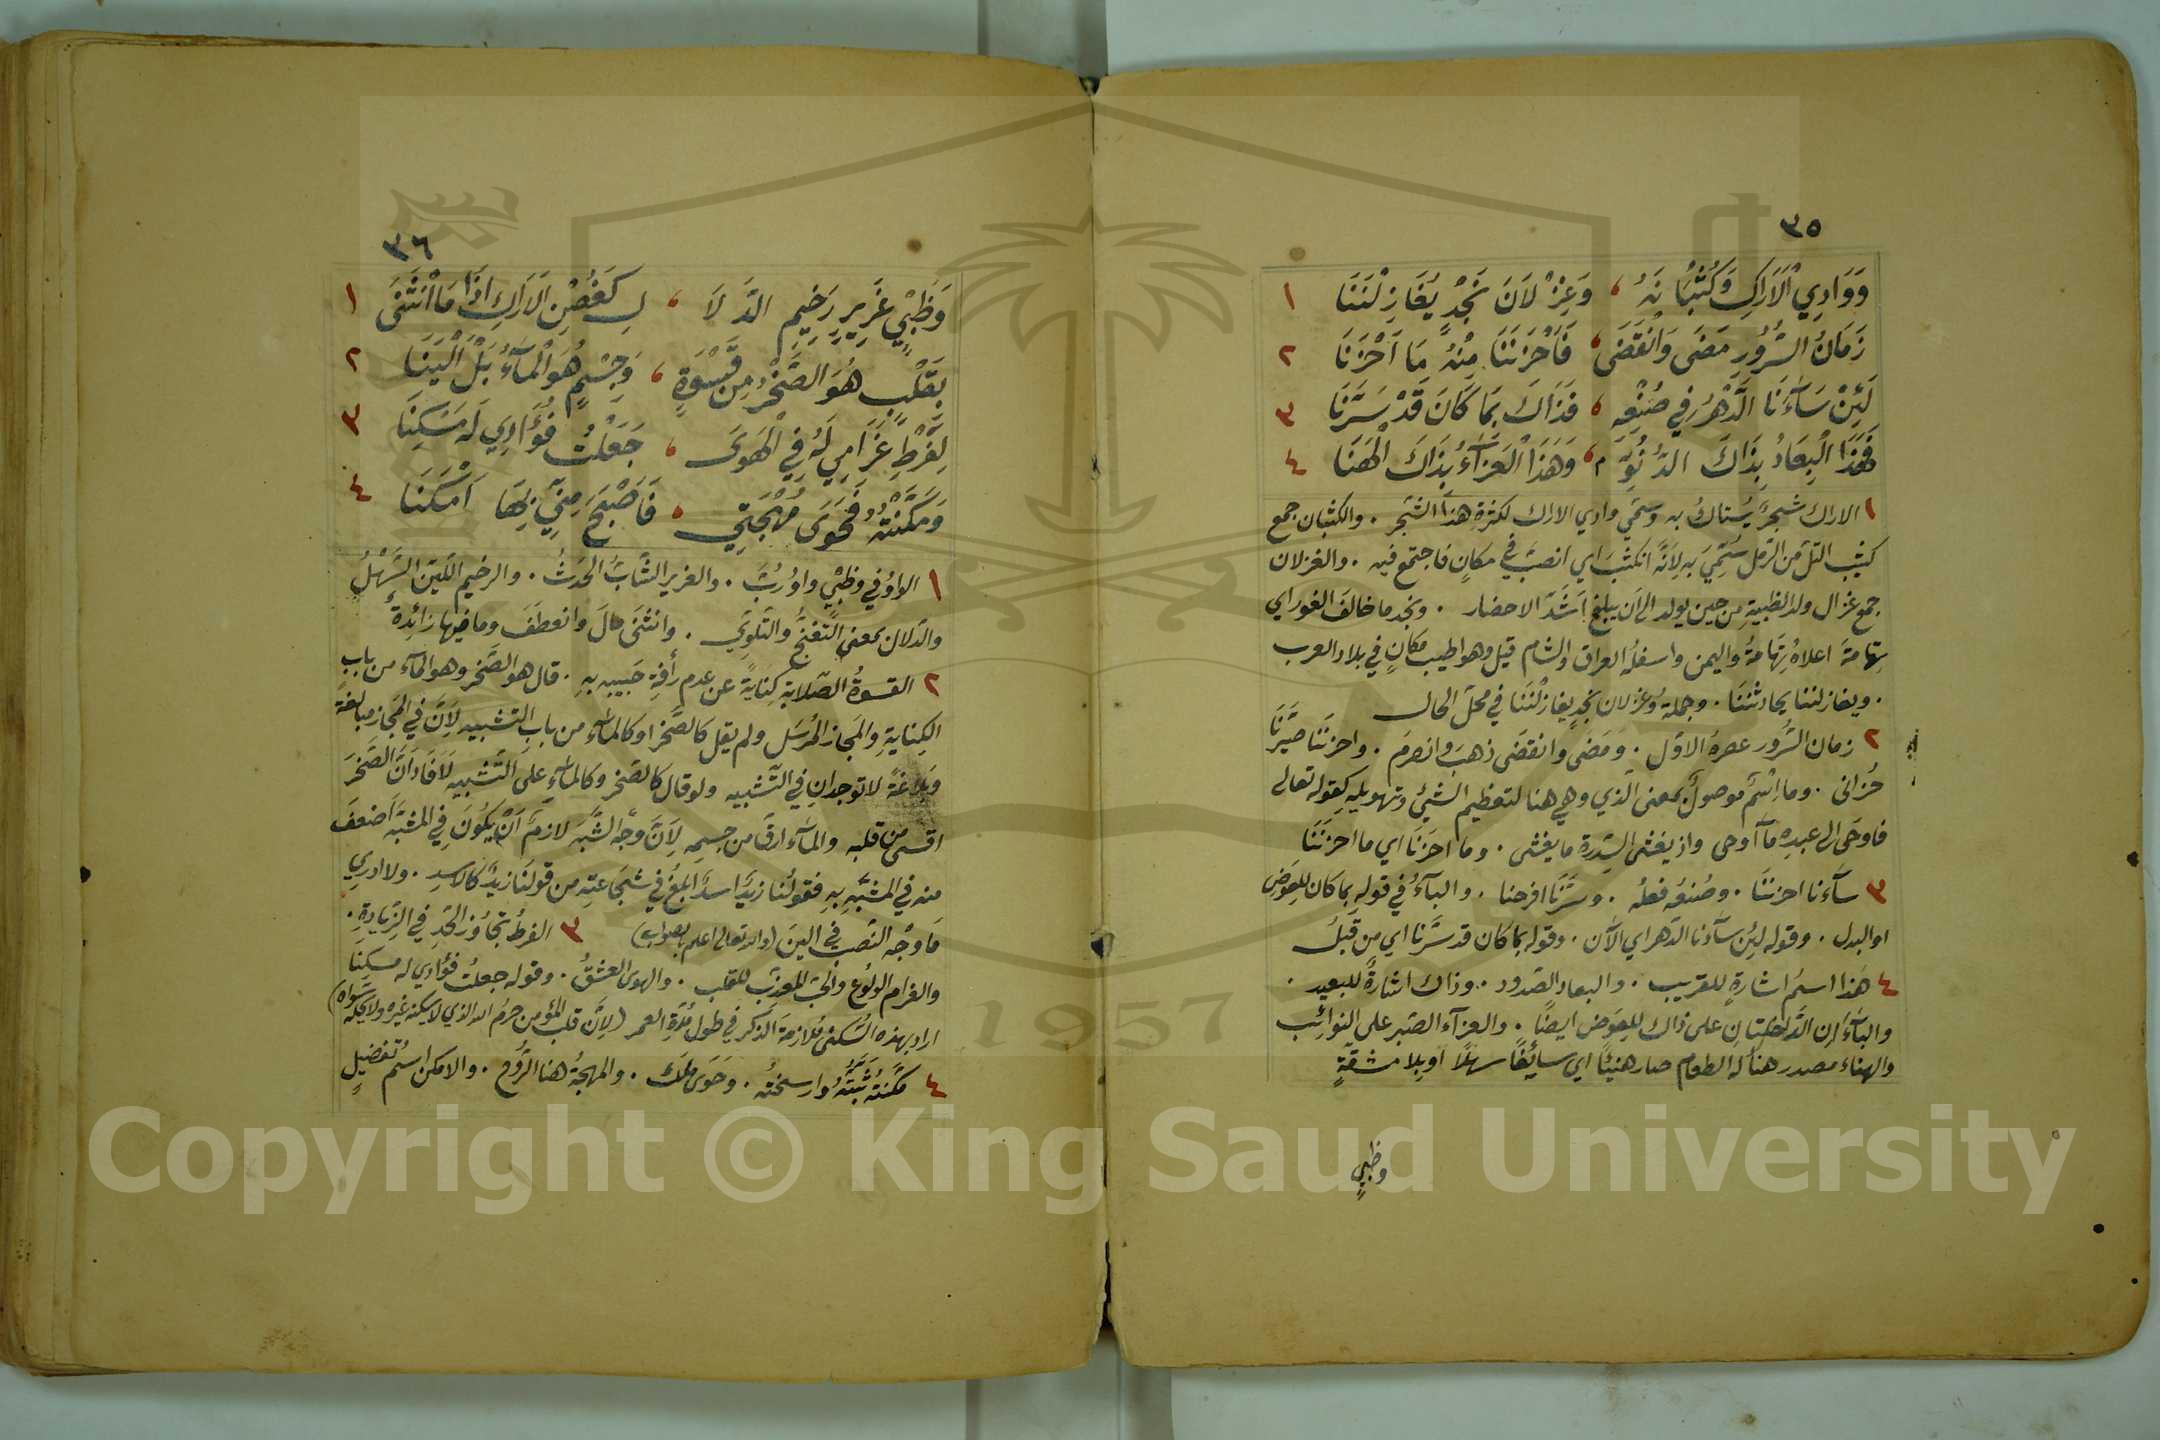 ٣٥
وَوَادِيْ الْاَرَاكِ وَكُثْبَانِهُ ، وَغِزْلَانَ نَجْدٍ يُغَازِلْنَنَا ١
زَمَانُ السُّرُورِ مَضَى وَانْقَضَى ، فَاَحْزَنَنَا مِنْهُ مَا اَحْزَنَا ٢
لَئِنْ سَآءَنَا الدَّهْرُ فِي صُنْعِهِ ، فَذَاكَ بِمَا كَانَ قَدْ سَرَّنَا ٣
فَهَذَا الْبِعَادُ بِذَاكَ الدُّنُوِّ ، وَهَذَا الْعَزَآءُ بِذَاكَ الْهَنَا ٤
١ الاراك شجرٌ يُستاكُ به وسمّي وادي الاراك لكثرة هذا الشجر . والكثبان جمع
كثيب التلّ من الرّمل سُمِّيَ به لِاَنّهُ انكثبَ اي انصبّ في مكانٍ فاجتمع فيه . والغزلان
جمع غزال ولد الظبية من حين يولد الى ان يبلغ اَشدّ الاحضار . ونجد ما خالف الغور اي
تِهامَةَ اعلاهُ تِهَامةُ واليمن واسفلُه العراق والشام قيل وهو اطيب مكانٍ في بلاد العرب
. ويغازلننا يحادثننا . وجملة وغزلان نجدٍ يغازلْنَنا في محلّ الحال
٢ زمان السُّرور عصرهُ الاوّل . وَمَضى وانقضَى ذهبَ وانصرمَ . واحزنَنا صيَّرنَا
حُزانى . وما اِسْم موصولٌ بمعنى الّذي وهي هنا لتعظيم الشّيْ وتهويلِهِ كقوله تعالى
فاوحَى الى عبدِهِ مآ اوحى واذ يغشى السِّدرةَ ما يغشى . وما احزَنَا اي ما احزنَنَا
٣ سآءنا احزننا . وصُنعُه فعلُه . وسرّنَا افرحنا . والبآءُ في قولِهِ بما كان للعِوَض
او البدل . وقوله لئِن سآءنا الدّهر اي الآن . وقوله بما كان قد سرّنا اي من قَبلُ
٤ هَذا اسمُ اشارةٍ للقريب . والبعاد الصّدود . وذاك اشارةٌ للبعيد .
والبآءَانِ الدّاخلتانِ على ذاك للعِوَض ايضًا . والعزآء الصّبر على النوائِب
والهناء مصدر هنأَ له الطعام صار هنيئًا اي سائِغًا سهلًا او بِلا مشقّةٍ
وظبيٍ
٣٦
وَظَبْيٍ غَرِيرٍ رَخِيمِ الدَّلَا ، لِ كَغُصْنِ الَارَاكِ اذَا مَا انْثَنَى ١
بِقَلْبٍ هُوَ الصَّخْرُ مِنْ قَسْوَةٍ ، وَجِسْمٍ هُوَ الْمَآءُ بَلْ اَلْيَنَا ٢
لِفَرْطِ غَرَامِي لَهُ فِي الْهَوَى ، جَعَلْتُ فُؤَادِي لَه مَسْكِنَا ٣
وَمَكَّنْتُهُ فَحَوَى مُهْجَتِي ، فَاَصْبَحَ مِنِّي بِهَا اَمْكَنَا ٤
١ الواوُ في وظبْيٍ واوُ رُبّ . والغرير الشّابُّ الحدَثُ . والرخيم الليّن السَّهْلُ
والدّلال بمعنى التّغنّج والتّلوّي . وانثنَى مالَ وانعطَفَ وما فيها زائِدةٌ
٢ القسوةُ الصّلابة كِنَايةً عن عدم رأفةِ حبيبِه بهِ . قال هو الصّخر وهو المآء من باب
الكِنايةِ والمَجازِ المُرسَل ولم يقل كالصّخر او كالمآء من بابِ التشبيه لِاَنّ في المَجاز مبالغةً
وبَلاغَةً لا توجدانِ في التّشبيه ولو قال كالصّخر وكالمآءِ على التّشبيه لَافَادَ اَنَّ الصّخرَ
اقسى من قلبه والمآءَ ارقّ من جسمِهِ لِاَنّ وجْه الشّبَه لازمٌ اَنْ يكُونَ في المشبّه اَضعفَ
منه في المشبّه بهِ فقولُنا زيدٌ اسدٌ ابلغُ في شجاعتهِ من قولنَا زيدٌ كالاسدِ . ولا ادري
مَا وجْه النّصْب في الينَ (والله تعالى اعلم بالصواب) ٣ الفرطُ تجاوُز الحدِ في الزّيادةِ .
والغرام الولُوع والحبّ المعذِّب للقلب . والهوى العشقُ . وقوله جعلتُ فؤادي له مسكِنَا
اراد بهذه السُّكنى مُلازمةَ الذّكر في طول مُدّةِ العمر (لِاَنّ قلب المُؤمن حرمُ الله الذي لا يسكنهُ غيرُه ولا يملكُه سِواه)
٤ مكّنتُهُ ثَبّتُّهُ وارسختُه . وحَوَى مَلَكَ . والمهجةُ هنا الرُّوح . والامكن اسْمُ تفضيلٍ
Copyright © King Saud University
1957